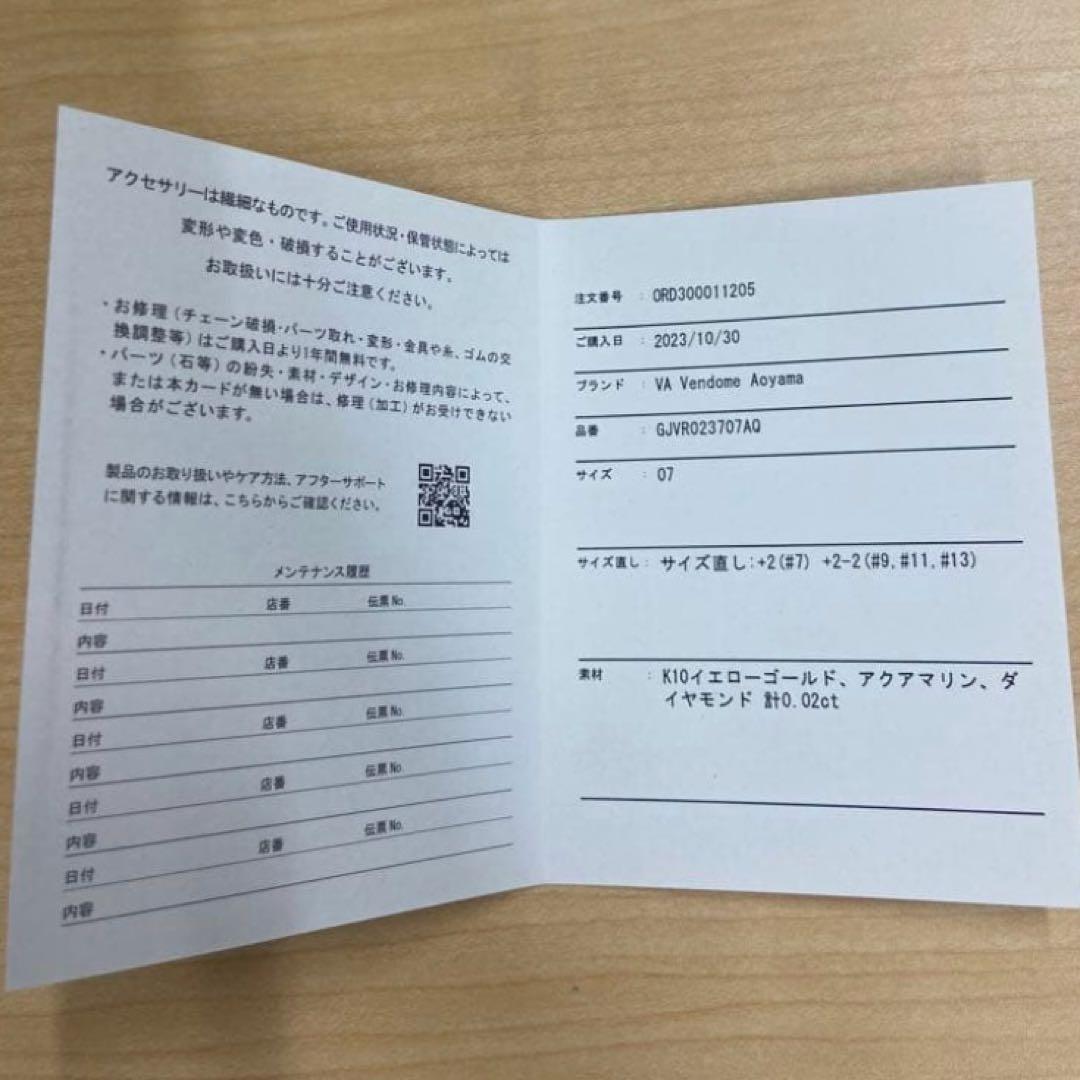 アクセサリーは繊細なものです。ご使用状況・保管状態によっては
変形や変色・破損することがございます。
お取扱いには十分ご注意ください。
・お修理（チェーン破損・パーツ取れ・変形・金具や糸、ゴムの交
換調整等）はご購入日より1年間無料です。
・パーツ（石等）の紛失・素材・デザイン・お修理内容によって、
または本カードが無い場合は、修理（加工）がお受けできない
場合がございます。
製品のお取り扱いやケア方法、アフターサポート
に関する情報は、こちらからご確認ください。
メンテナンス履歴
日付 店番 伝票No.
内容
日付 店番 伝票No.
内容
日付 店番 伝票No.
内容
日付 店番 伝票No.
内容
日付 店番 伝票No.
内容
注文番号 : ORD300011205
ご購入日 : 2023/10/30
ブランド : VA Vendome Aoyama
品番 : GJVR023707AQ
サイズ : 07
サイズ直し : サイズ直し:+2(#7) +2-2(#9,#11,#13)
素材 : K10イエローゴールド、アクアマリン、ダ
イヤモンド 計0.02ct